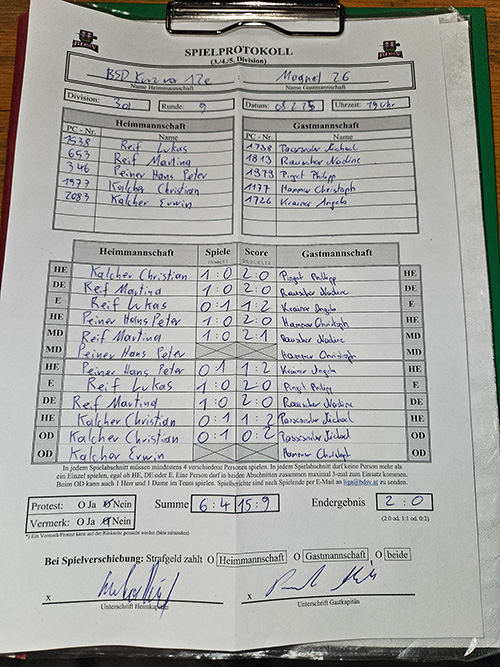 SPIELPROTOKOLL
(3./4./5. Division)
BSD Kurzva 12e : Magnet 26
Name Heimmannschaft Name Gastmannschaft
Division: 3a Runde: 9 Datum: 08.2.25 Uhrzeit: 19 Uhr
Heimmannschaft Gastmannschaft
PC - Nr. Name PC - Nr. Name
1538 Reif Lukas 1738
653 Reif Martina 1819 Rauscher Nadine
346 Peiner Hans Peter 1979 Pingel Philipp
1977 Kalcher Christian 1177 Hammer Christoph
2083 Kalcher Erwin 1726 Krainer Angela
Heimmannschaft Spiele Score Gastmannschaft
HE Kalcher Christian 1:0 2:0 Pingel Philipp HE
DE Reif Martina 1:0 2:0 Rauscher Nadine DE
E Reif Lukas 0:1 1:2 Krainer Angela E
HE Peiner Hans Peter 1:0 2:0 Hammer Christoph HE
MD Reif Martina 1:0 2:1 Rauscher Nadine MD
MD Peiner Hans Peter Hammer Christoph MD
HE Peiner Hans Peter 0:1 1:2 Krainer Angela HE
E Reif Lukas 1:0 2:0 Pingel Philipp E
DE Reif Martina 1:0 2:0 Rauscher Nadine DE
HE Kalcher Christian 0:1 1:2 HE
OD Kalcher Christian 0:1 0:2 OD
OD Kalcher Erwin Hammer Christoph OD
In jedem Spielabschnitt müssen mindestens 4 verschiedene Personen spielen. In jedem Spielabschnitt darf keine Person mehr als
ein Einzel spielen, egal ob HE, DE oder E. Eine Person darf in beiden Abschnitten zusammen maximal 3-mal zum Einsatz kommen.
Beim OD kann auch 1 Herr und 1 Dame im Team spielen. Spielberichte sind nach Spielende per E-Mail an liga@bdsv.at zu senden.
Protest: O Ja O Nein Summe 6:4 15:9 Endergebnis 2:0
Vermerk: O Ja O Nein (2:0 od. 1:1 od. 0:2)
*) Ein Vermerk/Protest kann auf der Rückseite gemacht werden (bitte ankreuzen)
Bei Spielverschiebung: Strafgeld zahlt O Heimmannschaft O Gastmannschaft O beide
x x
Unterschrift Heimkapitän Unterschrift Gastkapitän